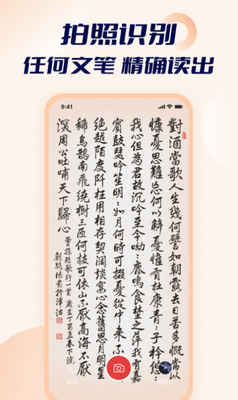 拍照识别
任何文笔 精确读出
9:41
對酒當歌人生幾何譬如朝露去日苦多慨當以
慷憂思難忘何以解憂惟有杜康青々子衿悠々
我心但為君故沉吟至今呦々鹿鳴食野之苹我有嘉
賓鼓瑟吹笙明々如月何時可掇憂從中來不
絕越陌度阡枉用相存契闊談宴心念舊恩月明星
稀烏鵲南飛繞樹三匝何枝可依山不厭高海不厭
深周公吐哺天下歸心
曹操短歌行一首